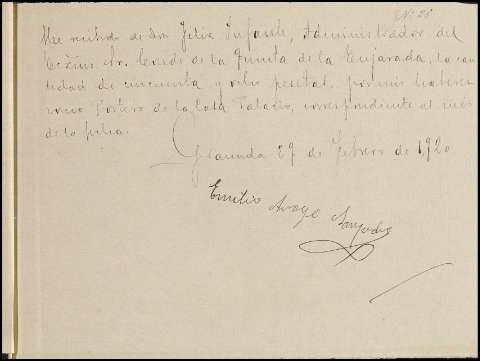 Nº 25
He recibido de don Felix Infante, Administrador del
Excmo. Sr. Conde de la Quinta de la Enjarada, la can-
tidad de cincuenta y ocho pesetas, por mis haberes
como Portero de la Casa Palacio, correspondiente al mes
de la fecha.
Granada 29 de Febrero de 1,920
Emilio